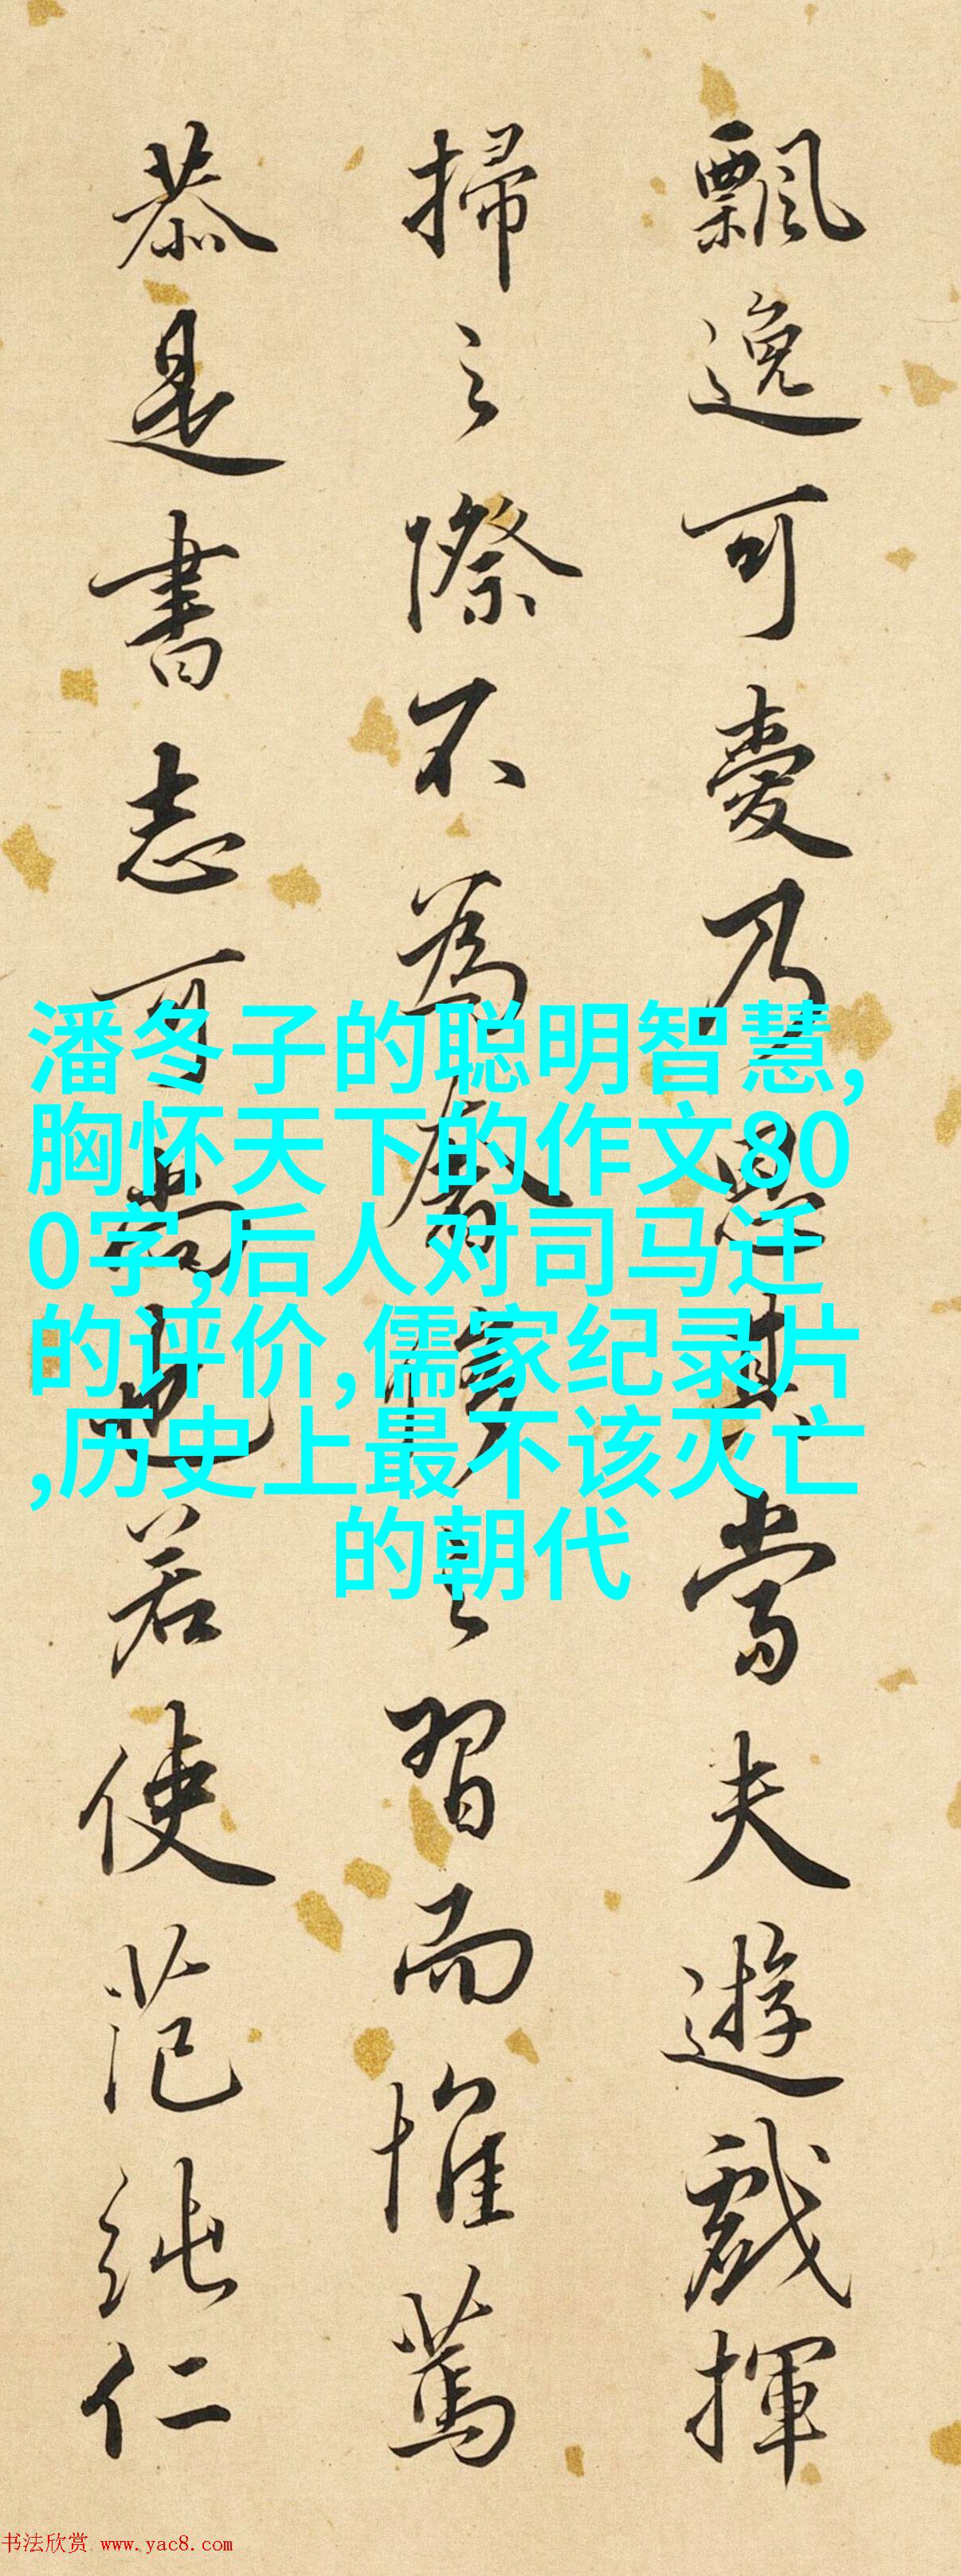 飄逸可愛乃思其當夫遊戲揮
掃之際不為嚴傳之習而惟篤
恭是書志可尚也若使范純仁
潘冬子的聪明智慧,
胸怀天下的作文80
0字,后人对司马迁
的评价,儒家纪录片
,历史上最不该灭亡
的朝代
书法欣赏 www.yac8.com